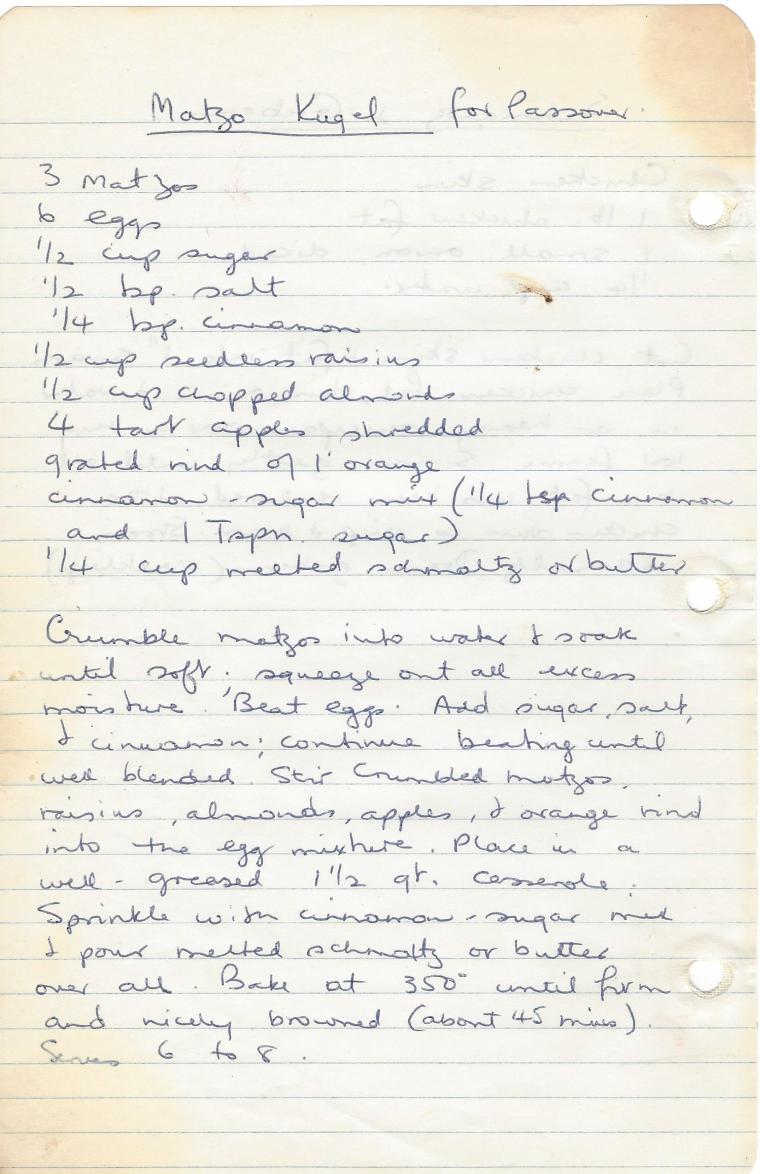 Matzo Kugel for Passover.
3 Matzos
6 eggs
1/2 cup sugar
1/2 tsp. salt
1/4 tsp. cinnamon
1/2 cup seedless raisins
1/2 cup chopped almonds
4 tart apples shredded
grated rind of 1 orange
cinnamon-sugar mix (1/4 tsp cinnamon
and 1 Tspn. sugar)
1/4 cup melted schmaltz or butter
Crumble matzos into water & soak
until soft; squeeze out all excess
moisture. Beat eggs. Add sugar, salt,
& cinnamon; continue beating until
well blended. Stir Crumbled matzos,
raisins, almonds, apples, & orange rind
into the egg mixture. Place in a
well-greased 1 1/2 qt. casserole.
Sprinkle with cinnamon-sugar mix
& pour melted schmaltz or butter
over all. Bake at 350° until firm
and nicely browned (about 45 mins).
Serves 6 to 8.